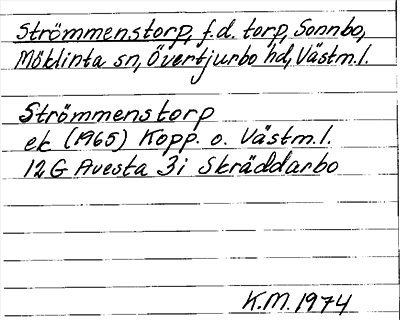 Strömmenstorp, f.d. torp, Sonnbo,
Möklinta sn, Övertjurbo hd, Västm.l.
Strömmenstorp
ek (1965) Kopp. o. Västm.l.
12G Avesta 3i Skräddarbo
K.M. 1974